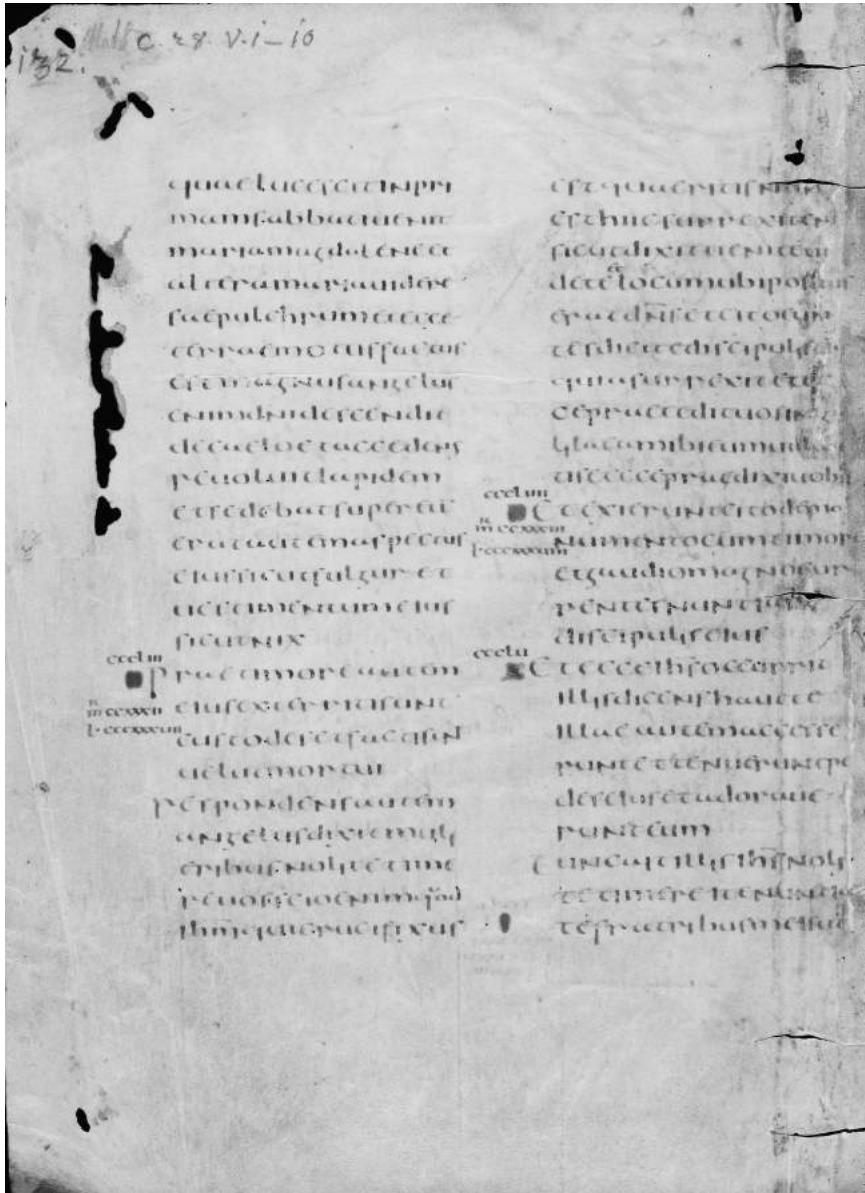 132.
C. 28. V. i–10
quaelucescitinpri
mamsabbatiuenit
mariamagdaleneet
alteramariauidere
saepulchrumetecce
terraemotusfactus
estmagnusangelus
enimdnidescendit
decaeloetaccedens
reuoluitlapidem
etsedebatsupereū
eratautemaspectus
eiussicutfulguret
uestimentumeius
sicutnix
cccliii
Praetimoreautem
eiusexterritisunt
m ccxxxii
l·cccxxxuiii
custodesetfactisun
ueluemortui
Respondensautem
angelusdixitmuli
eribusnolitetime
reuosscioenimquod
ihmquicrucifixus
estquaeritisnon
esthicsurrexiteni
sicutdixituenite
detelocumubiposi
eratdnsetcitoeun
tesdicitediscipulis
quiasurrexitetec
cepraeceditvosin
lilaeamibieumuide
tiseccepraedixiuobis
cccliiii
Etexieruntcitodemo
m ccxxxiii
numentocumtimore
l·cccxxxuiiii
etgaudiomagnocur
rentesnuntiare
discipuliseius
ccclu
Etecceihsoccurrit
illisdicenshauete
illaeautemaccesse
runtettenueruntpe
deseiusetadoraue
runteum
Tuncaitillisihsnoli
tetimereitenuntia
tefratribusmeisut